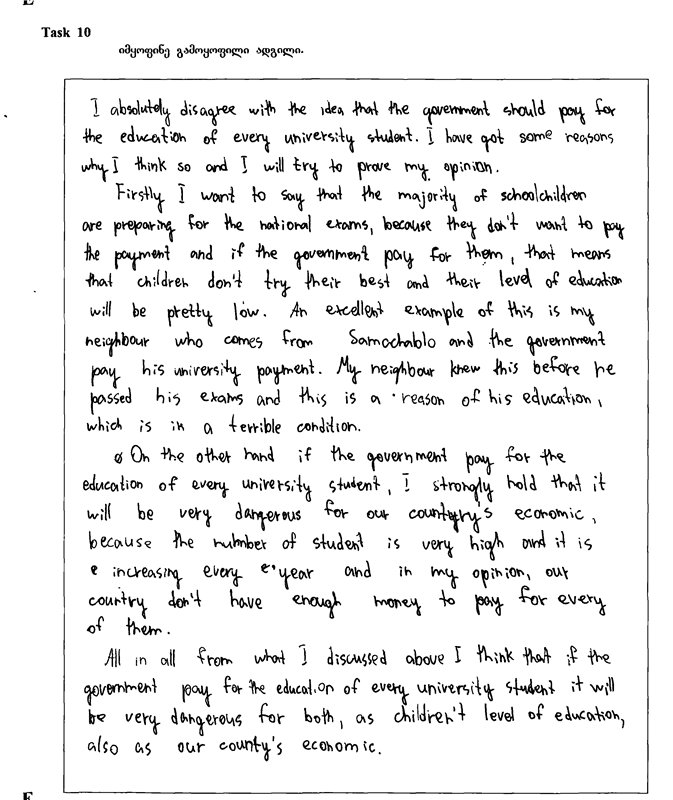 Task 10
იმყოფინე გამოყოფილი ადგილი.
I absolutely disagree with the idea that the government should pay for
the education of every university student. I have got some reasons
why I think so and I will try to prove my opinion.
Firstly I want to say that the majority of schoolchildren
are preparing for the national exams, because they don't want to pay
the payment and if the government pay for them, that means
that children don't try their best and their level of education
will be pretty low. An excellent example of this is my
neighbour who comes from Samachablo and the government
pay his university payment. My neighbour knew this before he
passed his exams and this is a reason of his education,
which is in a terrible condition.
On the other hand if the government pay for the
education of every university student, I strongly hold that it
will be very dangerous for our country's economic,
because the number of student is very high and it is
increasing every year and in my opinion, our
country don't have enough money to pay for every
of them.
All in all from what I discussed above I think that if the
government pay for the education of every university student it will
be very dangerous for both, as children't level of education,
also as our county's economic.